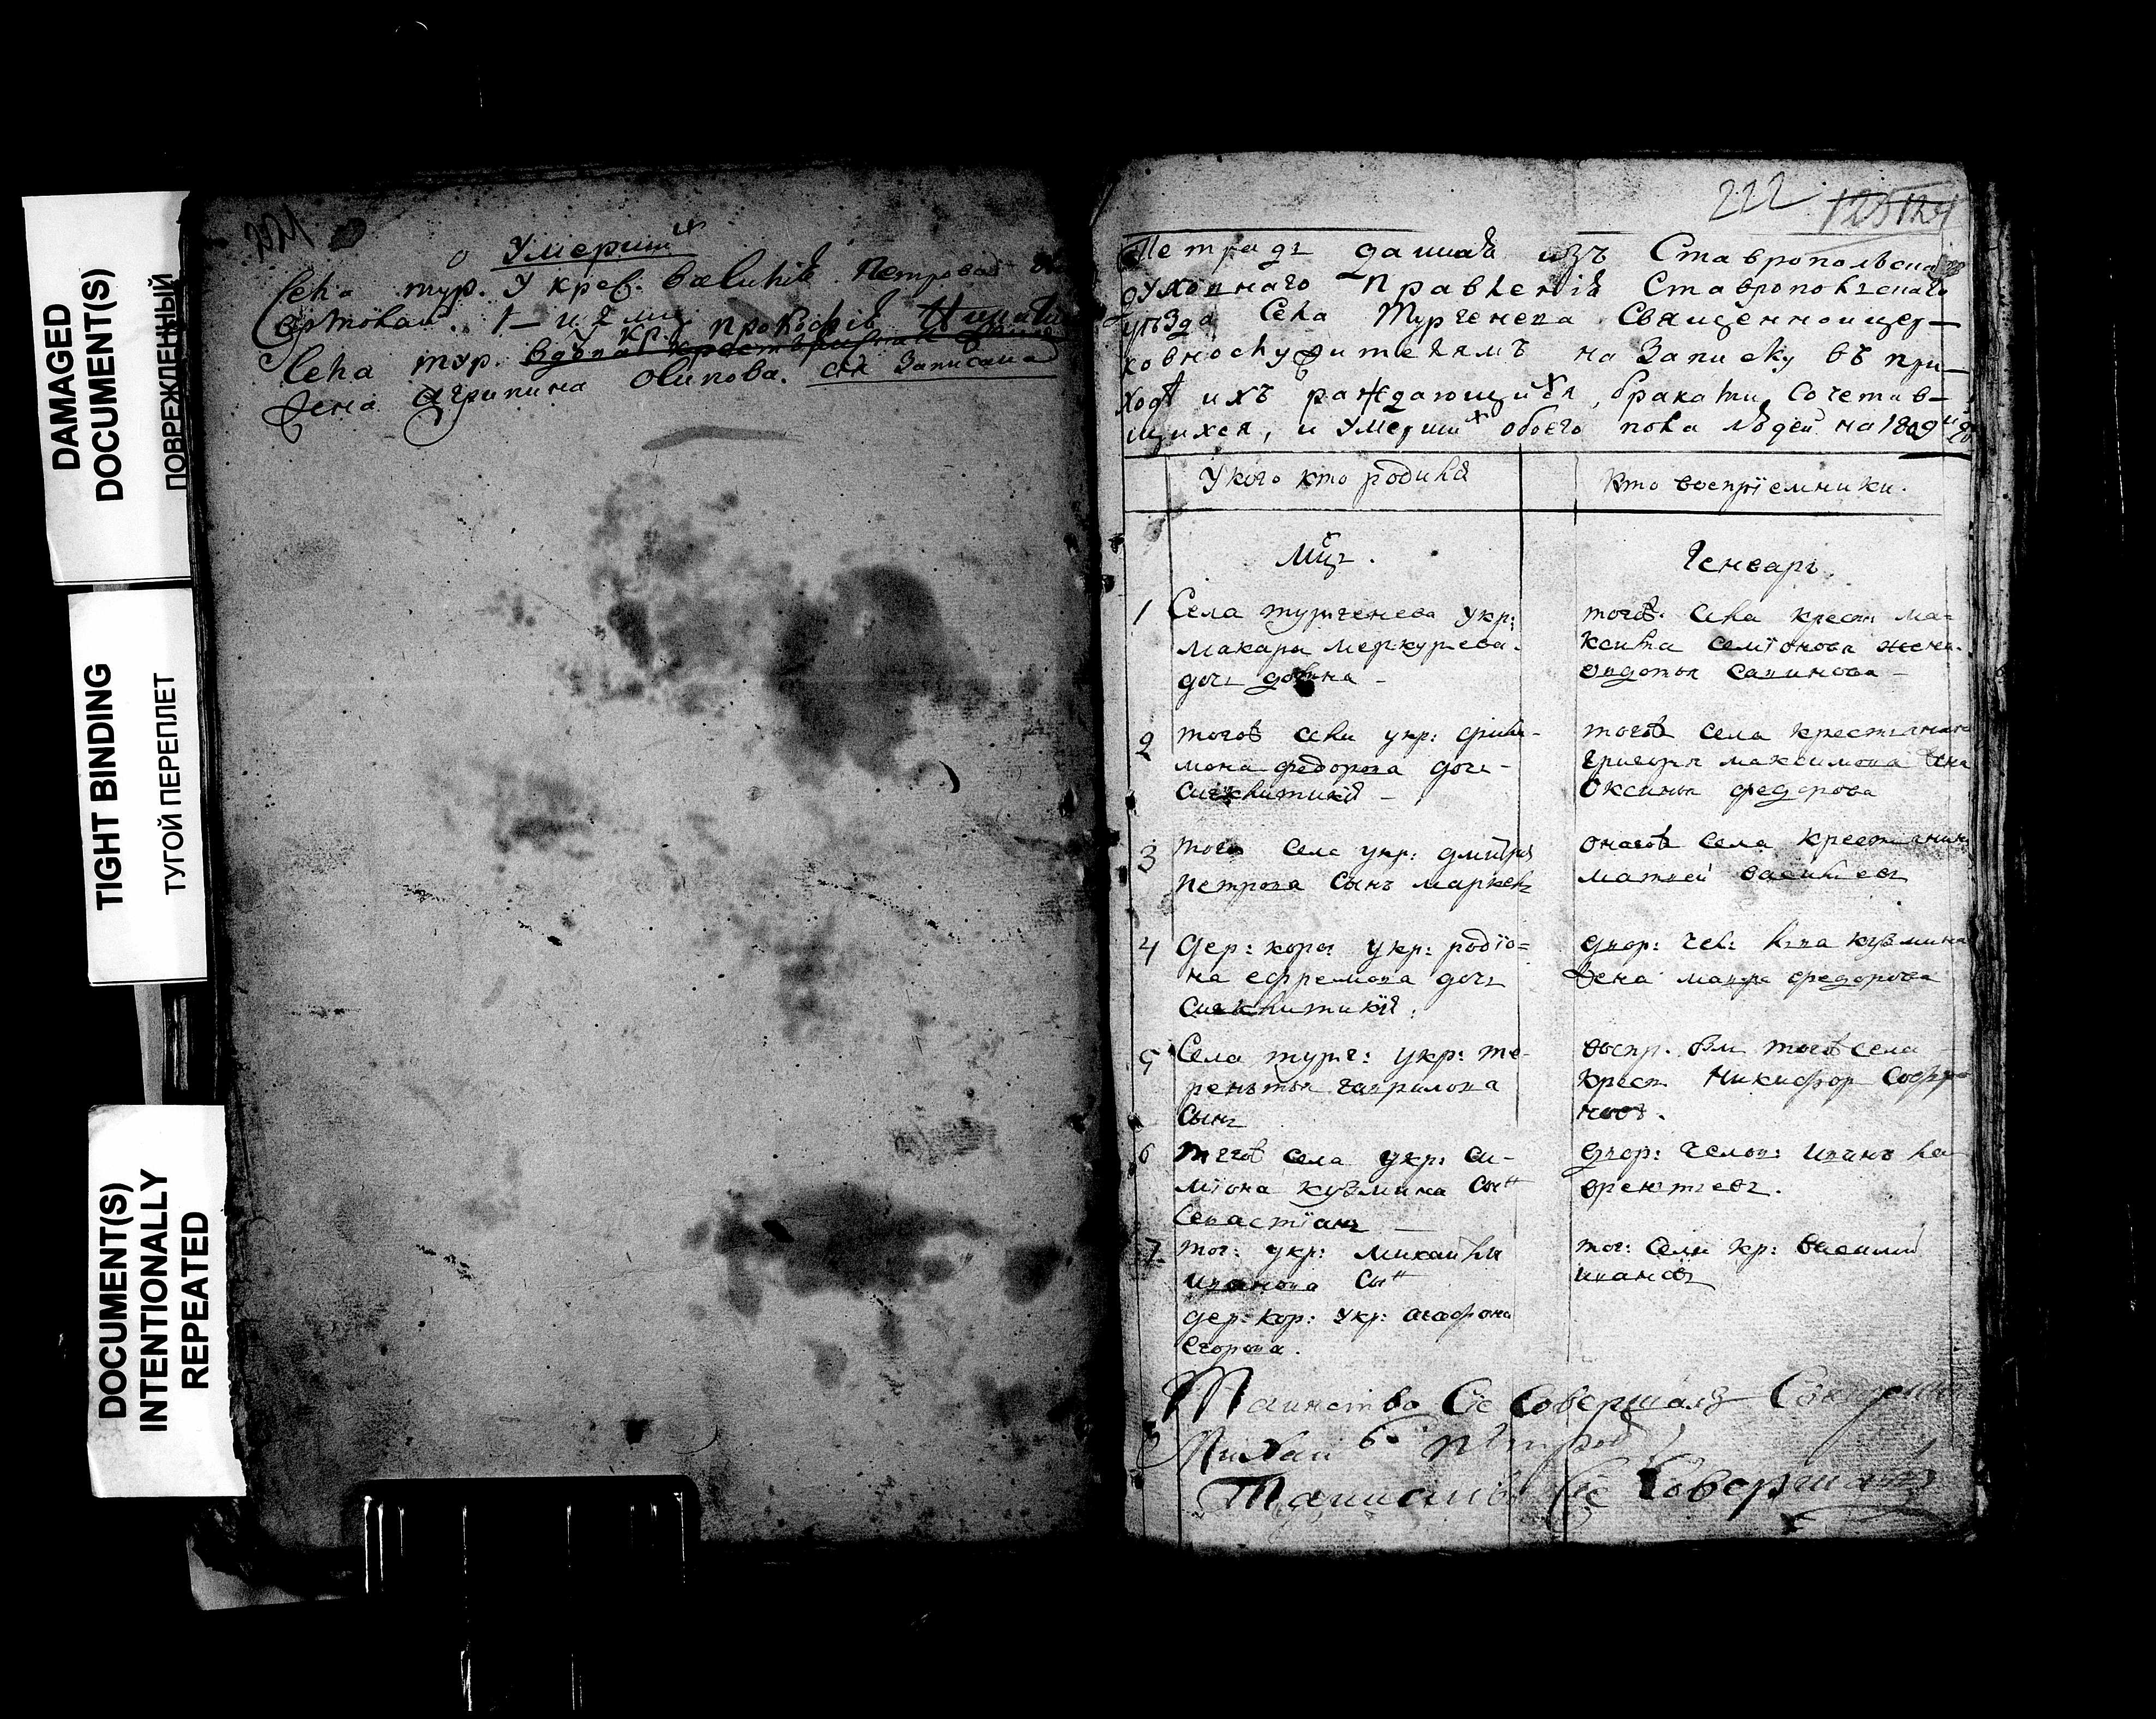 DAMAGED
DOCUMENT(S)
ПОВРЕЖДЕННЫЙ
TIGHT BINDING
ТУГОЙ ПЕРЕПЛЕТ
DOCUMENT(S)
INTENTIONALLY
REPEATED
Умерших
Села тур. У крес. Василия Петрова
Села тур.
жена агрипина осипова. записана
222
Тетрадь данная изъ Ставропольскаго
духовнаго Правления Ставропольскаго
уезда Села Тургенева Священноцер–
ковнослужителямъ на Записку въ при–
ходѣ ихъ раждающихся, бракомъ Сочетав–
шихся, и умерших обоего пола людей на 1809
У кого кто родился
Кто воспрїемники.
Мцъ.
Генварь
1 Села тургенева укр:
макара меркурьева.
дочь домна –
тогож. села крест: ма–
ксима семїонова жена.
овдотья савинова –
2 тогож села укр: фили–
мона федорова дочь–
сигклитикия –
тогож села крестьянина
григорья максимова жена
Оксинья федорова
3 того села укр: дмитрия
петрова сынъ маркелъ
онагож села крестьянинъ
матвей васильевъ
4 дер: коры укр: родїо=
на ефремова дочь
сигклитикїя:
двор: чел: льва кузмина
жена мавра федорова
5 Села тург: укр: те–
рентья гаврилова
сынъ
воспр. был тогож села
крест Никифор Софро
новъ.
6 тогож села укр: си–
мїона кузмина сынъ
севастїанъ
двор: челов: иванъ ла
врентьевъ.
7 тог: укр: михайлы
иванова сынъ
тог: села кр: василий
ивановъ
дер: кор: укр: агафона
Егорова.
Таинство Сие Совершалъ Священник
Михаил Петров
Таинство Сие Совершалъ